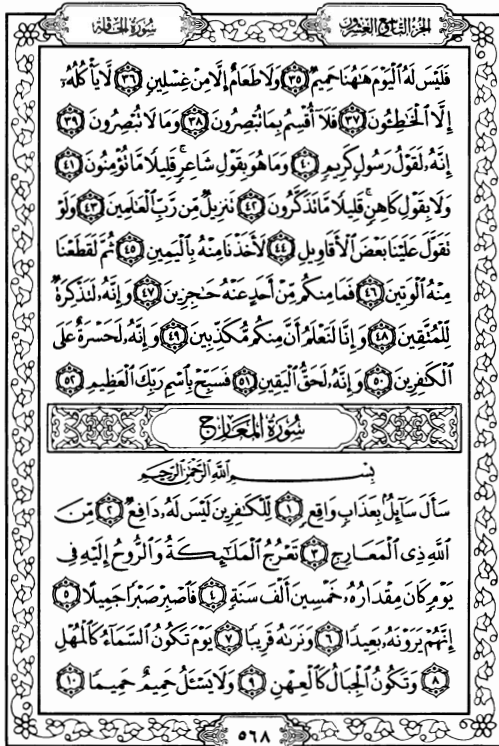 الجزء التاسع والعشرون
سورة الحاقة
فَلَيْسَ لَهُ ٱلْيَوْمَ هَٰهُنَا حَمِيمٌ ٣٥ وَلَا طَعَامٌ إِلَّا مِنْ غِسْلِينٍ ٣٦ لَّا يَأْكُلُهُۥٓ
إِلَّا ٱلْخَٰطِـُٔونَ ٣٧ فَلَآ أُقْسِمُ بِمَا تُبْصِرُونَ ٣٨ وَمَا لَا تُبْصِرُونَ ٣٩
إِنَّهُۥ لَقَوْلُ رَسُولٍ كَرِيمٍ ٤٠ وَمَا هُوَ بِقَوْلِ شَاعِرٍ ۚ قَلِيلًا مَّا تُؤْمِنُونَ ٤١
وَلَا بِقَوْلِ كَاهِنٍ ۚ قَلِيلًا مَّا تَذَكَّرُونَ ٤٢ تَنزِيلٌ مِّن رَّبِّ ٱلْعَٰلَمِينَ ٤٣ وَلَوْ
تَقَوَّلَ عَلَيْنَا بَعْضَ ٱلْأَقَاوِيلِ ٤٤ لَأَخَذْنَا مِنْهُ بِٱلْيَمِينِ ٤٥ ثُمَّ لَقَطَعْنَا
مِنْهُ ٱلْوَتِينَ ٤٦ فَمَا مِنكُم مِّنْ أَحَدٍ عَنْهُ حَٰجِزِينَ ٤٧ وَإِنَّهُۥ لَتَذْكِرَةٌ
لِّلْمُتَّقِينَ ٤٨ وَإِنَّا لَنَعْلَمُ أَنَّ مِنكُم مُّكَذِّبِينَ ٤٩ وَإِنَّهُۥ لَحَسْرَةٌ عَلَى
ٱلْكَٰفِرِينَ ٥٠ وَإِنَّهُۥ لَحَقُّ ٱلْيَقِينِ ٥١ فَسَبِّحْ بِٱسْمِ رَبِّكَ ٱلْعَظِيمِ ٥٢
سورة المعارج
بِسْمِ ٱللَّهِ ٱلرَّحْمَٰنِ ٱلرَّحِيمِ
سَأَلَ سَآئِلٌۢ بِعَذَابٍ وَاقِعٍ ١ لِّلْكَٰفِرِينَ لَيْسَ لَهُۥ دَافِعٌ ٢ مِّنَ
ٱللَّهِ ذِى ٱلْمَعَارِجِ ٣ تَعْرُجُ ٱلْمَلَٰٓئِكَةُ وَٱلرُّوحُ إِلَيْهِ فِى
يَوْمٍ كَانَ مِقْدَارُهُۥ خَمْسِينَ أَلْفَ سَنَةٍ ٤ فَٱصْبِرْ صَبْرًا جَمِيلًا ٥
إِنَّهُمْ يَرَوْنَهُۥ بَعِيدًا ٦ وَنَرَىٰهُ قَرِيبًا ٧ يَوْمَ تَكُونُ ٱلسَّمَآءُ كَٱلْمُهْلِ
٨ وَتَكُونُ ٱلْجِبَالُ كَٱلْعِهْنِ ٩ وَلَا يَسْـَٔلُ حَمِيمٌ حَمِيمًا ١٠
٥٦٨